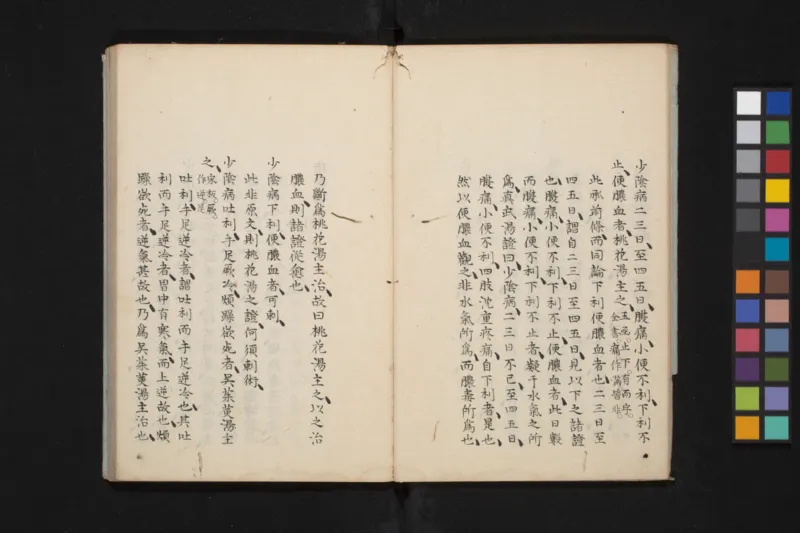 少陰病二三日至四五日腹痛小便不利下利不
止便膿血者桃花湯主之
此承前條而同論下利便膿血者也二三日至
四五日謂自二三日至四五日見以下之諸證
也腹痛小便不利下利不止便膿血者此日數
而腹痛小便不利下利不止者疑于水氣之所
爲真武湯證曰少陰病二三日不已至四五日
腹痛小便不利四肢沈重疼痛自下利者是也
然以便膿血觀之非水氣所爲而膿毒所爲也
乃斷爲桃花湯主治故曰桃花湯主之以之治
膿血則諸證從愈也
少陰病下利便膿血者可刺
此非原文則桃花湯之證何須刺術
少陰病吐利手足厥冷煩躁欲死者吳茱萸湯主
之
宋板厥
作逆是
吐利手足逆冷者謂吐利而手足逆冷也其吐
利而手足逆冷者胃中有寒氣而上逆故也煩
躁欲死者逆氣甚故也乃爲吳茱萸湯主治也